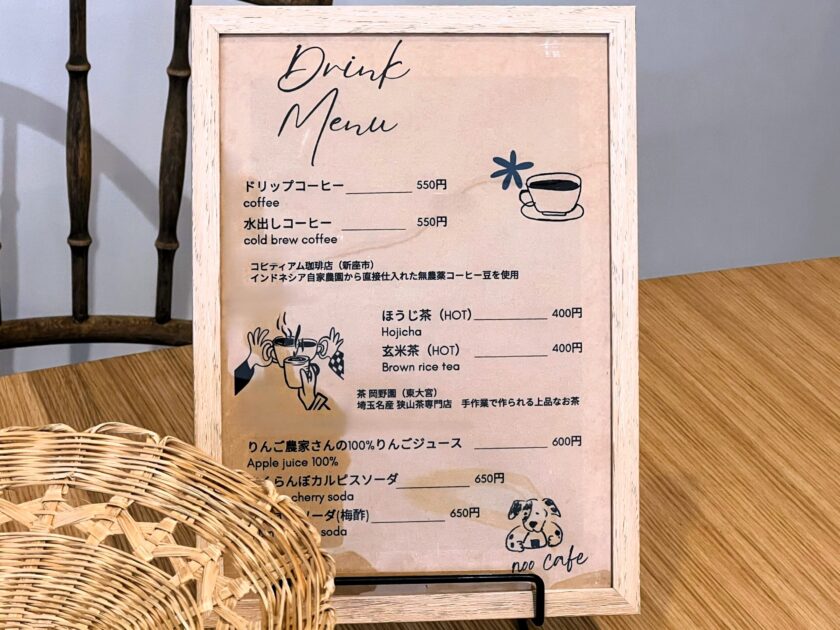 Drink
Menu
ドリップコーヒー 550円
coffee
水出しコーヒー 550円
cold brew coffee
コピティアム珈琲店（新座市）
インドネシア自家農園から直接仕入れた無農薬コーヒー豆を使用
ほうじ茶（HOT） 400円
Hojicha
玄米茶（HOT） 400円
Brown rice tea
茶 岡野園（東大宮）
埼玉名産 狭山茶専門店 手作業で作られる上品なお茶
りんご農家さんの100%りんごジュース 600円
Apple juice 100%
くらんぼカルピスソーダ 650円
cherry soda
ソーダ(梅酢) 650円
soda
noo cafe